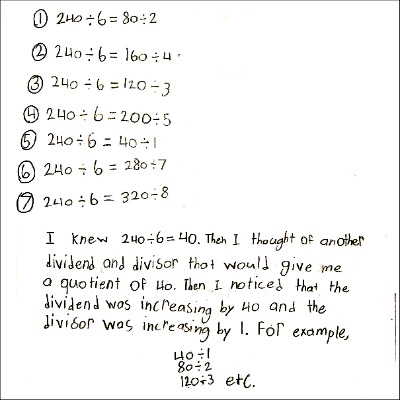 ① 240÷6=80÷2
② 240÷6=160÷4.
③ 240÷6=120÷3
④ 240÷6=200÷5
⑤ 240÷6=40÷1
⑥ 240÷6=280÷7
⑦ 240÷6=320÷8
I knew 240÷6=40. Then I thought of another
dividend and divisor that would give me
a quotient of 40. Then I noticed that the
dividend was increasing by 40 and the
divisor was increasing by 1. For example,
40÷1
80÷2
120÷3 etc.